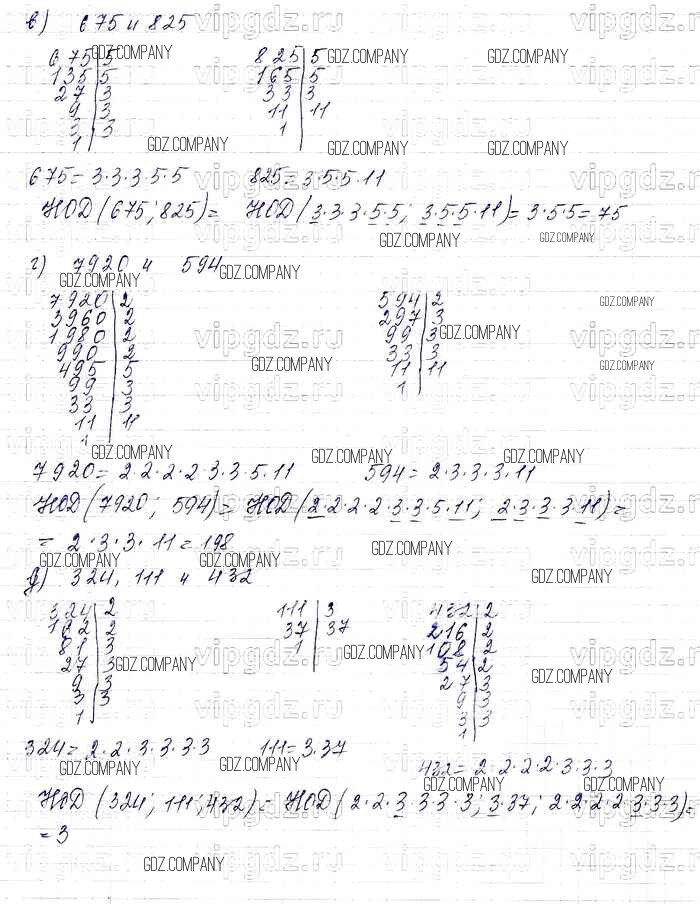 в) 675 и 825
675 | 5
135 | 5
27 | 3
9 | 3
3 | 3
1
825 | 5
165 | 5
33 | 3
11 | 11
1
675 = 3·3·3·5·5 825 = 3·5·5·11
НОД (675; 825) = НОД (3·3·3·5·5; 3·5·5·11) = 3·5·5 = 75
г) 7920 и 594
7920 | 2
3960 | 2
1980 | 2
990 | 2
495 | 5
99 | 3
33 | 3
11 | 11
1
594 | 2
297 | 3
99 | 3
33 | 3
11 | 11
1
7920 = 2·2·2·2·3·3·5·11 594 = 2·3·3·3·11
НОД (7920; 594) = НОД (2·2·2·2·3·3·5·11; 2·3·3·3·11) =
= 2·3·3·11 = 198
д) 324, 111 и 432
324 | 2
162 | 2
81 | 3
27 | 3
9 | 3
3 | 3
1
111 | 3
37 | 37
1
432 | 2
216 | 2
108 | 2
54 | 2
27 | 3
9 | 3
3 | 3
1
324 = 2·2·3·3·3·3 111 = 3·37
432 = 2·2·2·2·3·3·3
НОД (324; 111; 432) = НОД (2·2·3·3·3·3; 3·37; 2·2·2·2·3·3·3) =
= 3
GDZ.COMPANY
vipgdz.ru